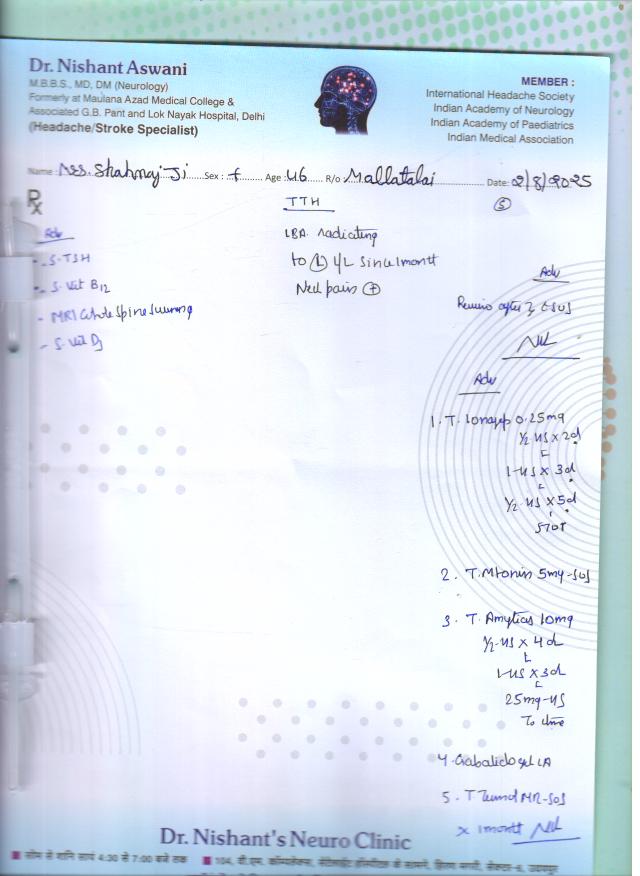 Dr. Nishant Aswani
M.B.B.S., MD, DM (Neurology)
Formerly at Maulana Azad Medical College &
Associated G.B. Pant and Lok Nayak Hospital, Delhi
(Headache/Stroke Specialist)
MEMBER :
International Headache Society
Indian Academy of Neurology
Indian Academy of Paediatrics
Indian Medical Association
Name : Mrs. Shahnaj Ji Sex : f Age : 46 R/o Mallatalai Date: 2/8/2025
Rx
TTH
5
Adv
- S. TSH
- S. Vit B12
- MRI whole Spine
- S. Vit D3
LBA radiating
to (L) L/L since 1 month
Neck pain (+)
Adv
Review after
Adv
1. T. Lonazep 0.25mg
1/2 - HS x 2d
1 - HS x 3d
1/2 - HS x 5d
STOP
2. T. Mtonin 5mg - SOS
3. T. 10mg
1/2 - HS x 4d
1 - HS x 3d
25mg - HS
To
4. gel LA
5. T MR - SOS
x 1 month
Dr. Nishant's Neuro Clinic
■ सोम से शनि सायं 4:30 से 7:00 बजे तक ■ 104, हॉस्पिटल के सामने, हिरण मगरी, सेक्टर-6, उदयपुर